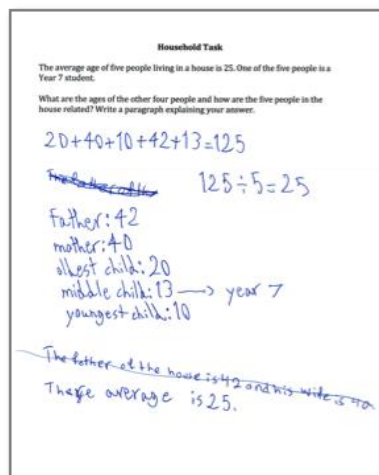 Household Task
The average age of five people living in a house is 25. One of the five people is a
Year 7 student.
What are the ages of the other four people and how are the five people in the
house related? Write a paragraph explaining your answer.
20+40+10+42+13=125
The father of the
125÷5=25
father: 42
mother: 40
olhest child: 20
middle child: 13 → year 7
youngest child: 10
The father of the house is 42 and his wife is 40
There average is 25.